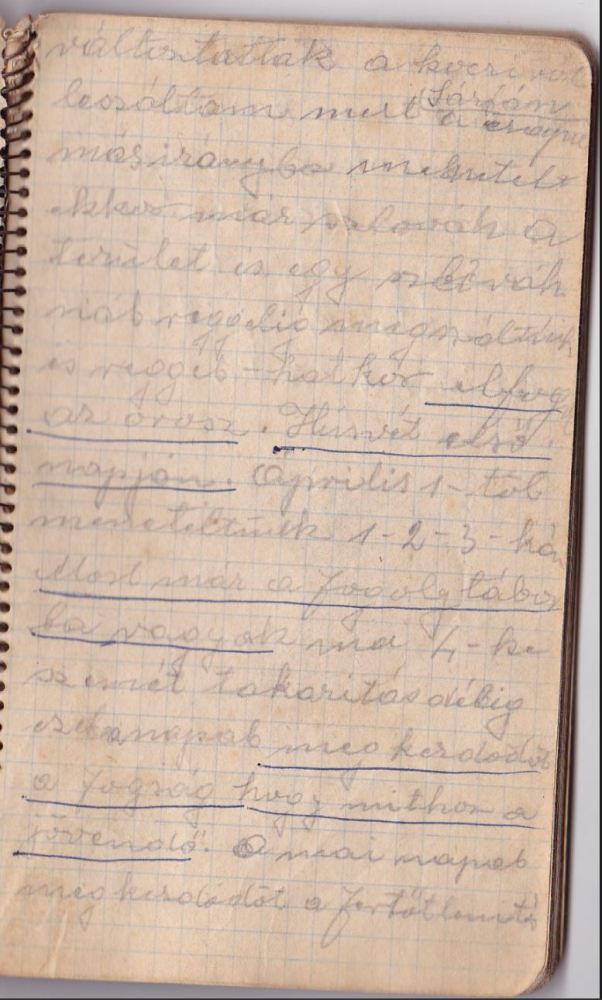 változtattak a kocsi
leszáltam mert Sárfán a
másirányba menetelt
ekkor már szlovák a
terület is egy szlovák
nál reggelig megszáltunk
is reggel-hatkor elfog
az órosz. Húsvét első
napján. Április 1-től
meneteltünk 1-2-3-kán
Most már a fogolytábor
ba vagyok ma 4-ke
szemét takarítás délig
ezel anapal meg kezdödöt
a fogság hogy mithoz a
jövendő. a mai napal
megkezdödöt a fertőtlenités